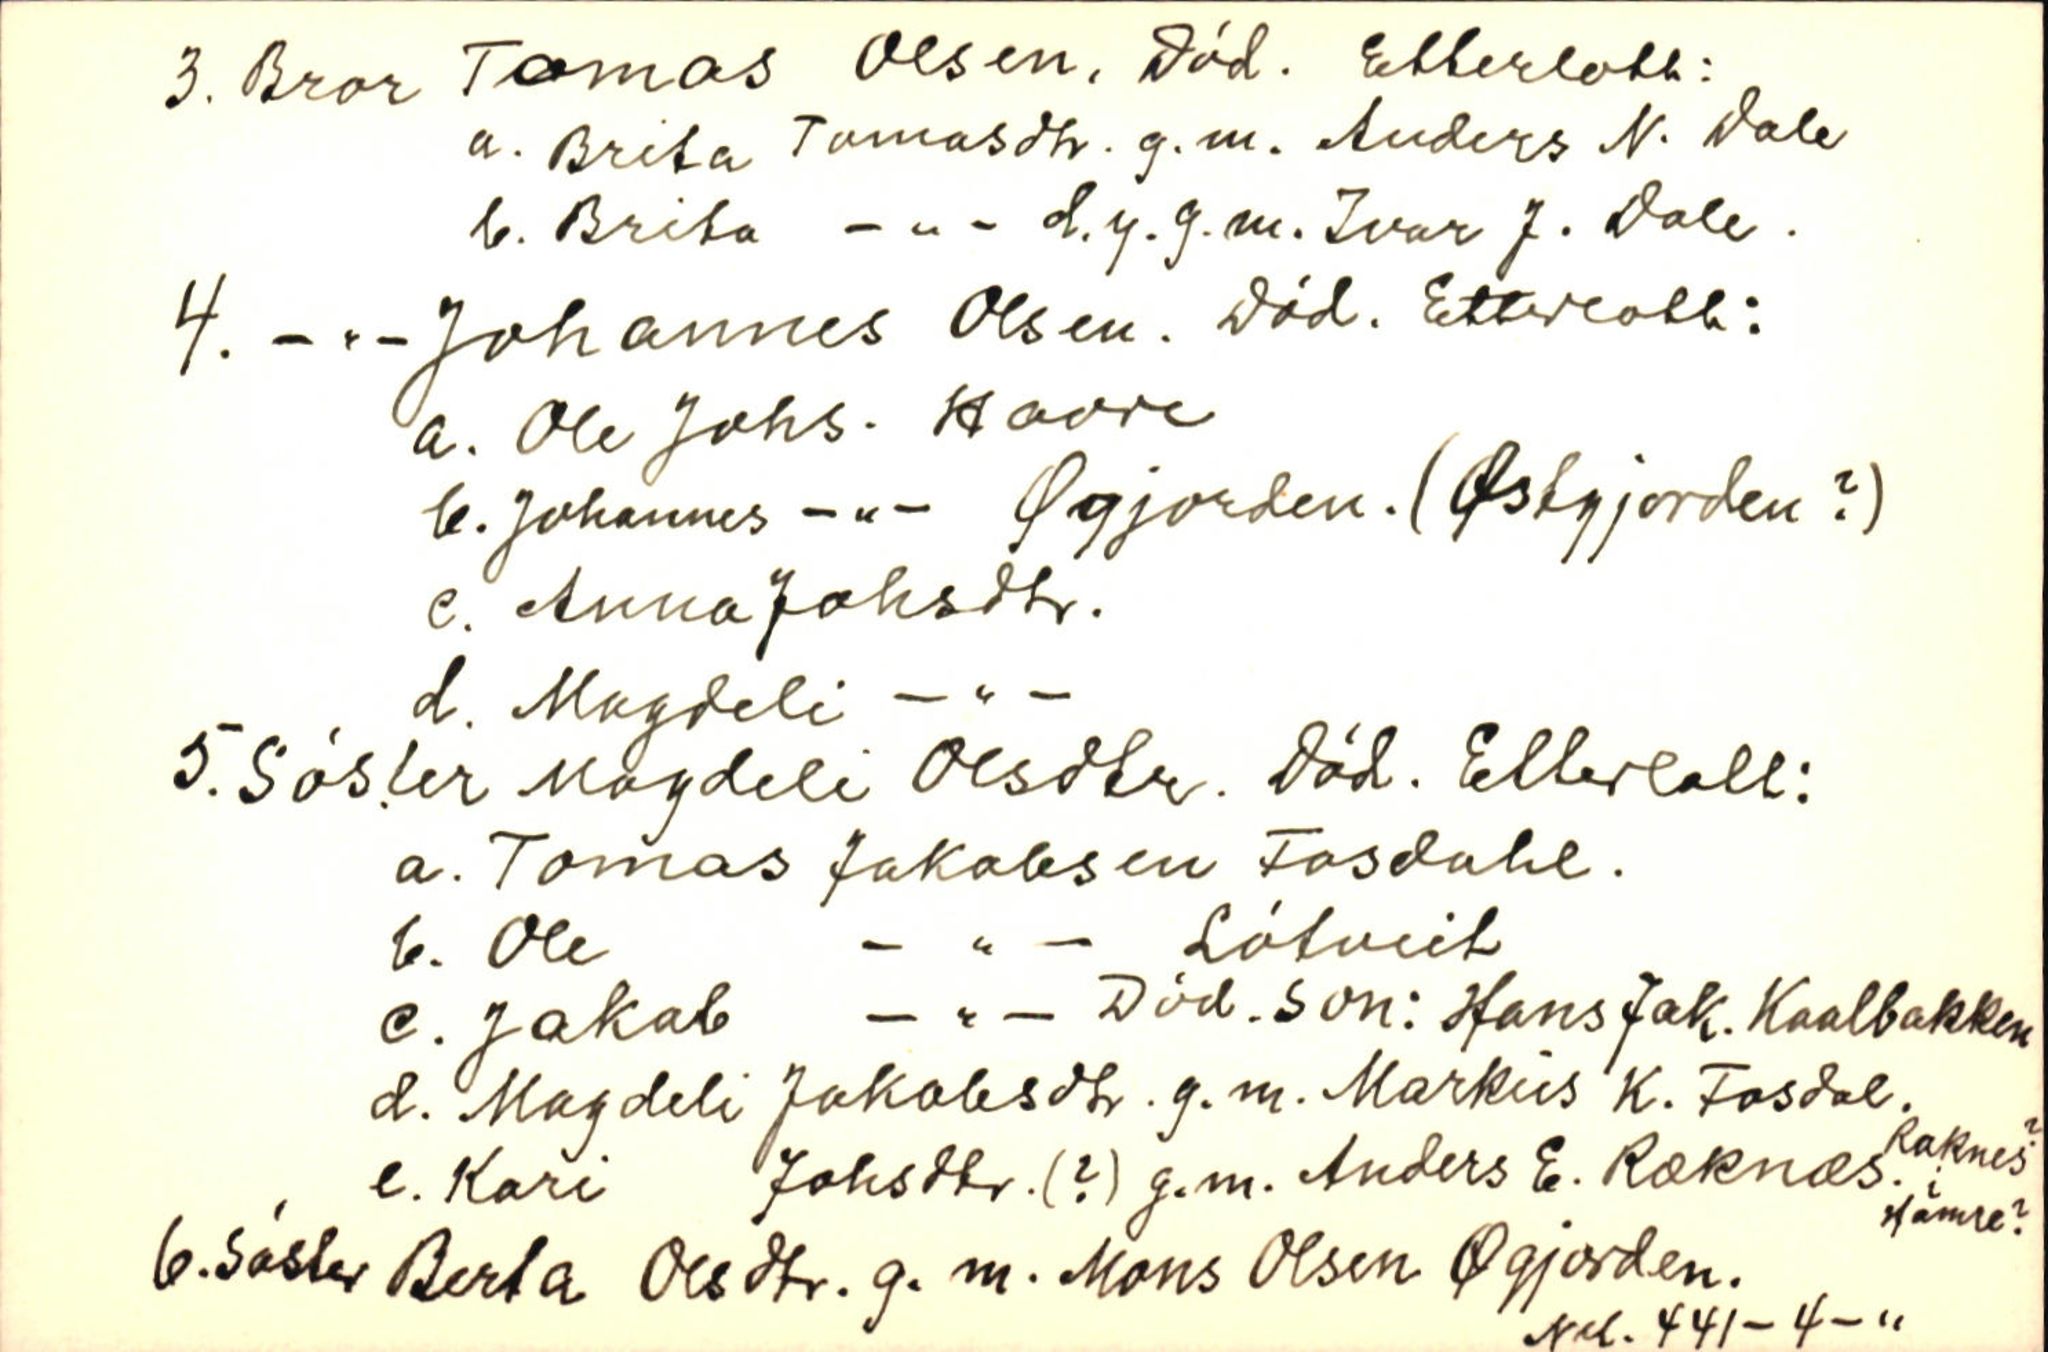 3. Bror Tomas Olsen. Död. Etterlatt:
a. Brita Tomasdtr. g.m. Anders N. Dale
b. Brita -"- d.y. g.m. Ivar J. Dale.
4. -"- Johannes Olsen. Död. Etterlatt:
a. Ole Johs. Havre
b. Johannes -"- Øgjorden. (Østgjorden?)
c. Anna Johsdtr.
d. Magdeli -"-
5. Söster Magdeli Olsdtr. Död. Etterlatt:
a. Tomas Jakobsen Fosdahl.
b. Ole -"- Lótveit
c. Jakob -"- Död. Son: Hans Jak. Kaalbakken
d. Magdeli Jakobsdtr. g.m. Markus K. Fosdal.
e. Kari Johsdtr. (?) g.m. Anders E. Ræknæs. Raknes? i Hamre?
6. Söster Berta Olsdtr. g.m. Mons Olsen Øgjorden.
441-4-"